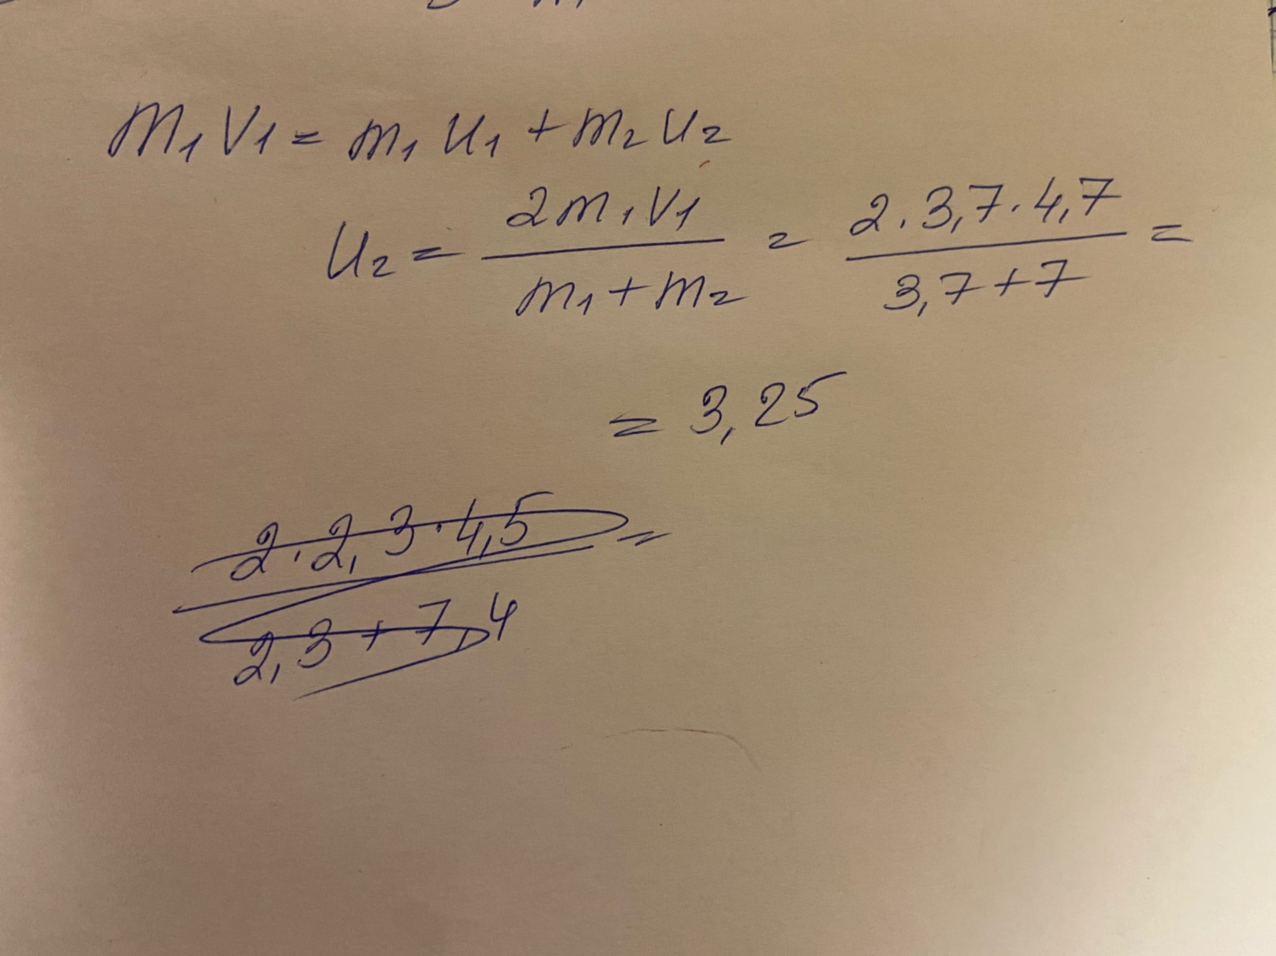 m₁ v₁ = m₁ u₁ + m₂ u₂
u₂ = (2m₁v₁)/(m₁+m₂) = (2·3,7·4,7)/(3,7+7) =
= 3,25
(2·2,3·4,5)/(2,3+7,4) =